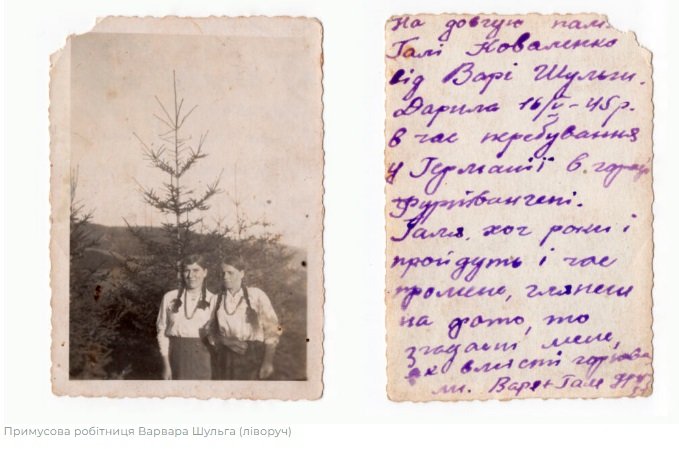 На довгую пам
Галі Коваленко
від Варі Шульги.
Дарила 16/V-45р.
в час перебування
у Германії в. городі
Фуртвангені.
Галя, хоч роки і
пройдуть і час
промене, глянеш
на фото, то
згадаєш мене,
як вмісті
ми. Варя + Галя
Примусова робітниця Варвара Шульга (ліворуч)